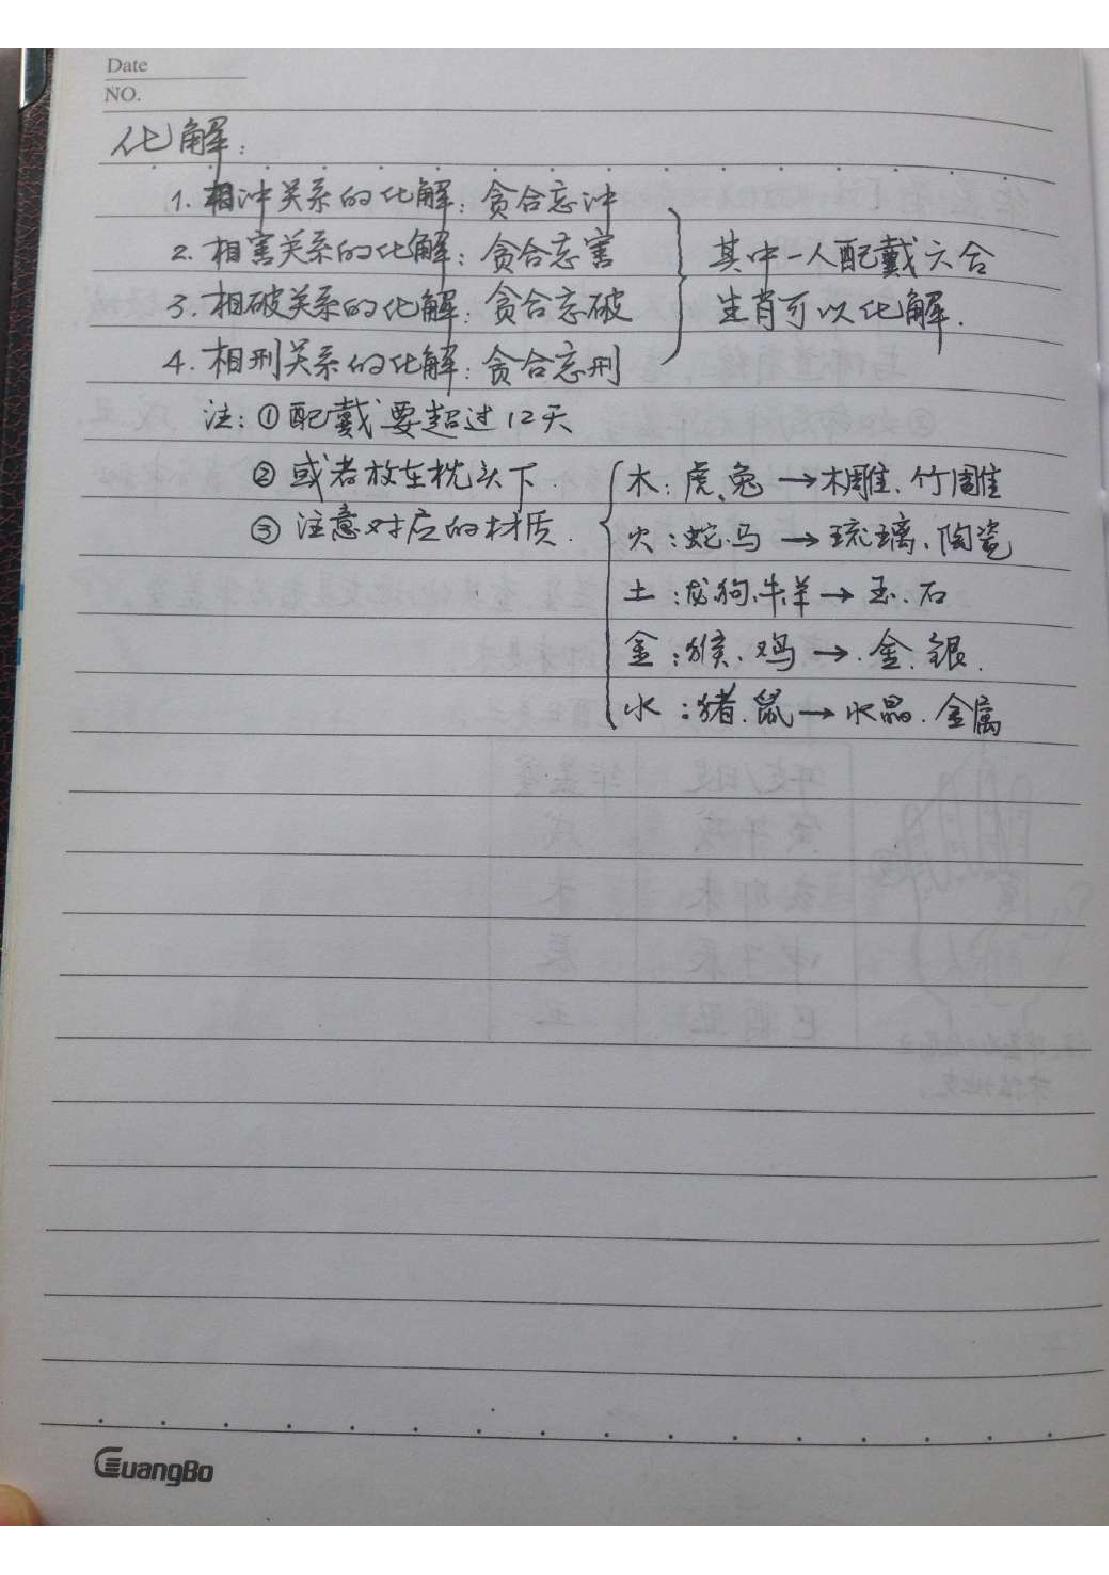 Date
NO.
化解：
1. 相冲关系的化解：贪合忘冲
2. 相害关系的化解：贪合忘害
3. 相破关系的化解：贪合忘破
4. 相刑关系的化解：贪合忘刑
其中一人配戴六合
生肖可以化解.
注：①配戴要超过12天
②或者放在枕头下.
③注意对应的材质.
木：虎、兔→木雕、竹雕
火：蛇.马→琉璃、陶瓷
土：龙狗.牛.羊→玉.石
金：猴、鸡→金.银.
水：猪.鼠→水晶.金属
GuangBo